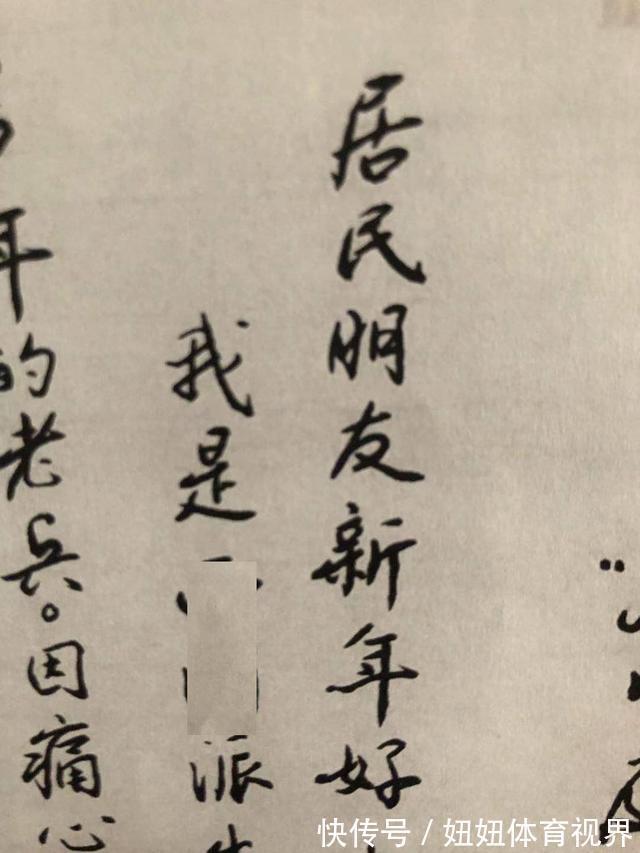 居民朋友新年好
我是
派
年的老兵。因痛心
快传号/妞妞体育视界